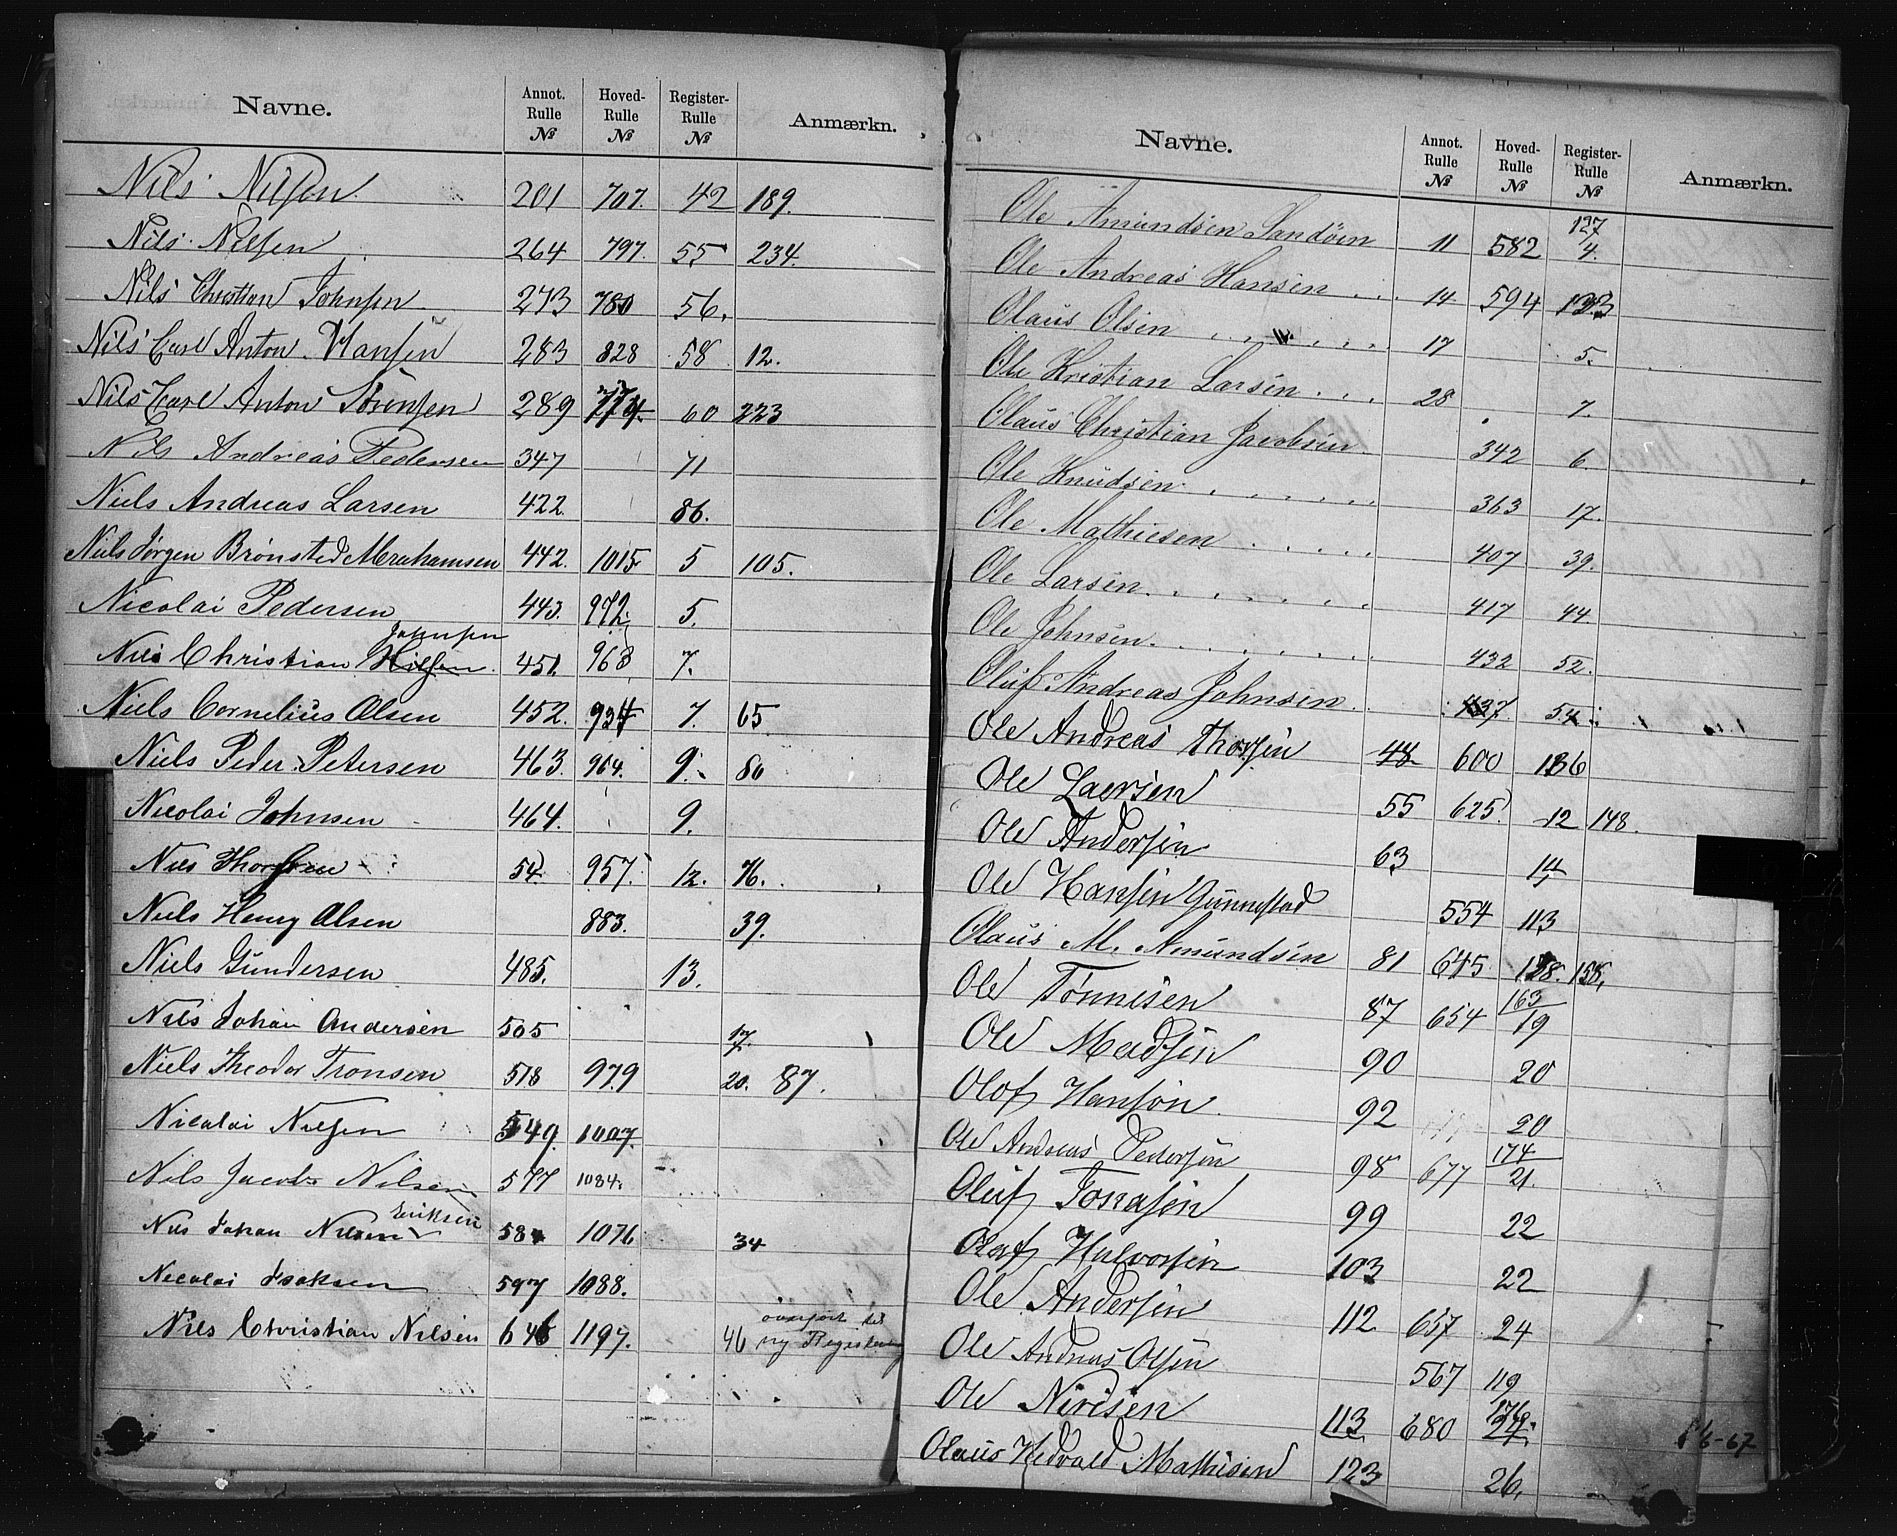 Navne. Annot. Rulle № Hoved- Rulle № Register- Rulle № Anmærkn.
Nils Nilsen 201 707. 42 189.
Nils Nilsen 264 797. 55 234.
Nils Christian Johnsen 273 780 56.
Nils Carl Anton Hansen 283 828 58 12.
Nils Carl Anton Sörensen 289 60 223
Nils Andreas Pedersen 347 71
Niels Andreas Larsen 422. 86.
Niels Jørgen Brønsted Abrahamsen 442. 1015 5 105.
Nicolai Pedersen 443. 972. 5.
Johnsen
Nils Christian Nilsen 451. 968 7.
Niels Cornelius Olsen 452. 934 7. 65
Niels Peder Petersen 463. 964. 9. 80
Nicolai Johnsen 464. 9.
Nils Thorsen 54 957. 12. 76.
Niels Henry Olsen 883. 39.
Niels Gundersen 485. 13.
Nils Johan Andersen 505 17.
Niels Theodor Tronsen 518 979 20. 87.
Nicolai Nilsen 549. 1007.
Nils Jacob Nilsen 577 1084.
Eriksen
Nils Johan Nilsen 584 1076 34
Nicolai Isaksen 597 1088.
Nils Christian Nilsen 646 1197. 46 overført til ny Registering
Navne. Annot. Rulle № Hoved- Rulle № Register- Rulle № Anmærkn.
Ole Amundsen Sandöen 11 582 127/4.
Ole Andreas Hansen . . . 14 594 133
Olaus Olsen . . . . . . . 17 5.
Ole Kristian Larsen . . . 28 7.
Olaus Christian Jacobsen 342 6.
Ole Knudsen . . . . . . 363 17.
Ole Mathiesen . . . . . 407 39.
Ole Larsen . . . . . . . 417 44
Ole Johnsen . . . . . . . 432 52.
Oluf Andreas Johnsen . 437 54
Ole Andreas Thorsen 48 600 136
Ole Laersen 55 625. 12 148.
Ole Andersen 63 14
Ole Hansen Gunnestad 554 113
Olaus M. Amundsen 81 645 158. 158.
Ole Tönnesen 87 654 163/19
Ole Madsen 90 20
Olof Hanson 92 20
Ole Andreas Pedersen 98 677 174/21.
Oluf Tonasen 99 22
Olaf Halvorsen 103 22
Ole Andersen 112 657 24
Ole Andreas Olsen 567 119
Ole Nirisen 113 680 176/24.
Olaus Hedvald Mathisen 123 26.